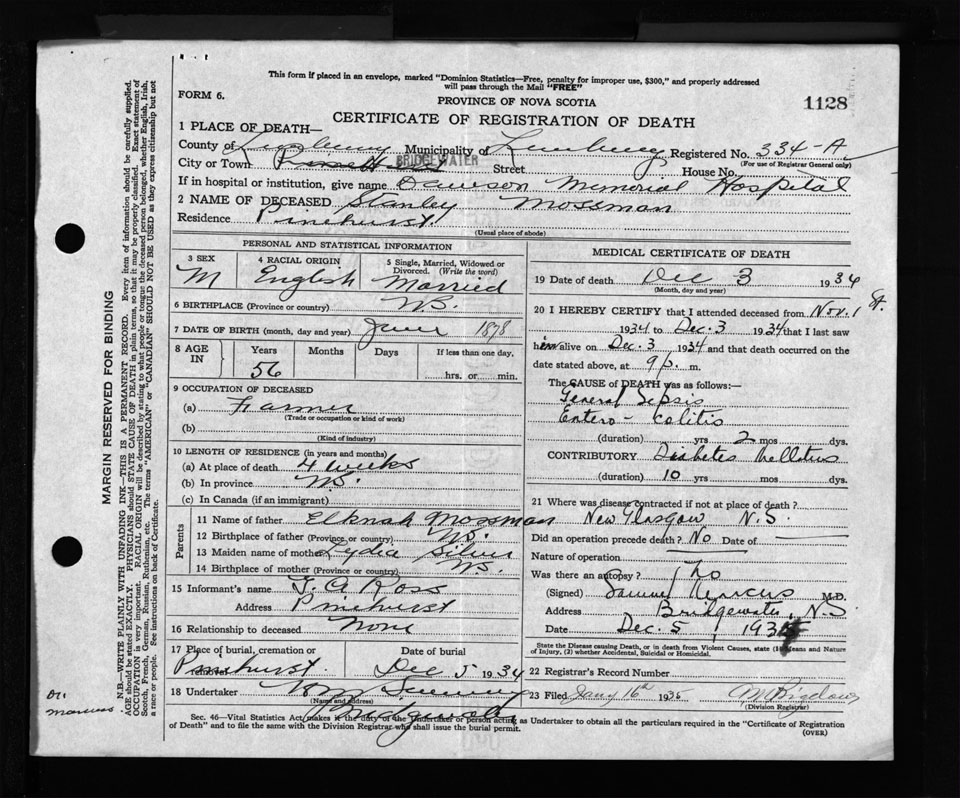 This form if placed in an envelope, marked "Dominion Statistics—Free, penalty for improper use, $300," and properly addressed
will pass through the Mail "FREE"
FORM 6.
PROVINCE OF NOVA SCOTIA
1128
CERTIFICATE OF REGISTRATION OF DEATH
1 PLACE OF DEATH—
County of Lunenburg Municipality of Lunenburg Registered No. 334-A
(For use of Registrar General only)
City or Town BRIDGEWATER Street House No.
If in hospital or institution, give name Dawson Memorial Hospital
2 NAME OF DECEASED Stanley Mossman
Residence Pinehurst
(Usual place of abode)
PERSONAL AND STATISTICAL INFORMATION
3 SEX M
4 RACIAL ORIGIN English
5 Single, Married, Widowed or Divorced. (Write the word) Married
6 BIRTHPLACE (Province or country) N.S.
7 DATE OF BIRTH (month, day and year) June 1878
8 AGE IN Years Months Days If less than one day,
56 hrs. or min.
9 OCCUPATION OF DECEASED
(a) Farmer
(Trade or occupation or kind of work)
(b)
(Kind of industry)
10 LENGTH OF RESIDENCE (in years and months)
(a) At place of death 4 weeks
(b) In province N.S.
(c) In Canada (if an immigrant)
Parents
11 Name of father Elknah Mossman
12 Birthplace of father (Province or country) N.S.
13 Maiden name of mother Lydia Silver
14 Birthplace of mother (Province or country) N.S.
15 Informant's name Ross
Address Pinehurst
16 Relationship to deceased None
17 Place of burial, cremation or removal Date of burial
Pinehurst. Dec 5 1934
18 Undertaker Wm
(Name and address)
MEDICAL CERTIFICATE OF DEATH
19 Date of death Dec 3 1934
(Month, day and year)
20 I HEREBY CERTIFY that I attended deceased from Nov. 1 st.
1934 to Dec. 3 1934 that I last saw
him alive on Dec. 3 1934 and that death occurred on the
date stated above, at 9 p. m.
The CAUSE of DEATH was as follows:—
General Sepsis
Entero - Colitis
(duration) yrs 2 mos dys.
CONTRIBUTORY Diabetes Mellitus
(duration) 10 yrs mos dys.
21 Where was disease contracted if not at place of death?
New Glasgow N.S.
Did an operation precede death? No Date of
Nature of operation
Was there an autopsy? No
(Signed) Marcus M.D.
Address Bridgewater, N.S
Date Dec. 5, 193
State the Disease causing Death, or in death from Violent Causes, state (1) Means and Nature
of Injury, (2) whether Accidental, Suicidal or Homicidal.
22 Registrar's Record Number
23 Filed Jany 16th 1935
(Division Registrar)
Sec. 46—Vital Statistics Act, makes it the duty of the Undertaker or person acting as Undertaker to obtain all the particulars required in the "Certificate of Registration
of Death" and to file the same with the Division Registrar who shall issue the burial permit.
(OVER)
MARGIN RESERVED FOR BINDING
N.B.—WRITE PLAINLY WITH UNFADING INK—THIS IS A PERMANENT RECORD. Every item of information should be carefully supplied.
AGE should be stated EXACTLY. PHYSICIANS should STATE CAUSE OF DEATH in plain terms, so that it may be properly classified. Exact statement of
OCCUPATION is very important. RACIAL ORIGIN will be described by stating to what people or tongue the deceased person belonged, whether English, Irish,
Scotch, French, German, Russian, Ruthenian, etc. The terms "AMERICAN" or "CANADIAN" SHOULD NOT BE USED as they express citizenship but not
a race or people. See instructions on back of Certificate.
Dr.
Marcus